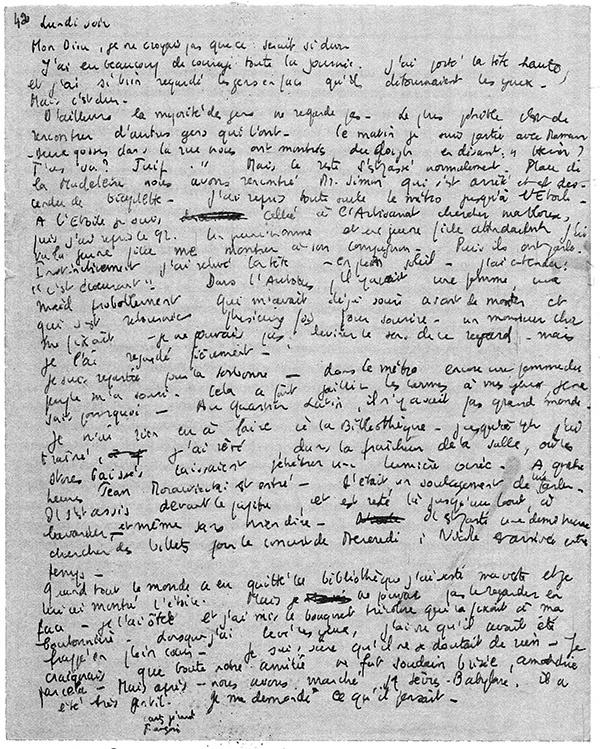 420 Lundi soir
Mon Dieu, je ne croyais pas que ce serait si dur.
J'ai eu beaucoup de courage toute la journée. J'ai porté la tête haute,
et j'ai si bien regardé les gens en face qu'ils détournaient les yeux.
Mais c'est dur.
D'ailleurs la majorité des gens ne regarde pas. Le plus pénible c'est de
rencontrer d'autres gens qui l'ont. Ce matin je suis partie avec Maman
deux gosses dans la rue nous ont montrés du doigt en disant : "
T'as vu ? Juif." Mais le reste s'est passé normalement. Place de
la Madeleine nous avons rencontré M. Simon qui s'est arrêté et est des-
cendu de bicyclette. J'ai repris toute seule le métro jusqu'à l'Etoile.
A l'Etoile je suis allée à l'Artisanat chercher ma blouse,
puis j'ai repris le 92. Un jeune homme et une jeune fille attendaient, j'ai
vu la jeune fille me montrer à son compagnon. Puis ils ont parlé.
Instinctivement j'ai relevé la tête - en plein soleil - j'ai entendu :
"c'est écoeurant". Dans l'Autobus, il y avait une femme, une
maid probablement qui m'avait déjà souri avant de monter et
qui s'est retournée plusieurs fois pour sourire - un monsieur chic
me fixait - je ne pouvais pas deviner le sens de ce regard - mais
je l'ai regardé fièrement.
Je suis repartie pour la Sorbonne - dans le métro encore une femme du
peuple m'a souri. Cela a fait jaillir les larmes à mes yeux je ne
sais pourquoi - Au Quartier Latin, il n'y avait pas grand monde.
Je n'ai rien eu à faire à la Bibliothèque - jusqu'à 4h j'ai
trainé j'ai rêvé, dans la fraîcheur de la salle, où les
stores baissés laissaient pénétrer une lumière ocrée. A quatre
heures Jean Morawiecki est entré. C'était un soulagement de lui parler.
Il s'est assis devant le pupitre, et est resté là jusqu'au bout, à
bavarder, et même sans rien dire - Il est parti une demi heure
chercher des billets pour le concert de Mercredi ; Nicole est arrivée entre
temps -
Quand tout le monde a eu quitté la bibliothèque j'ai sorti ma veste et je
lui ai montré l'étoile. Mais je ne pouvais pas le regarder en
face - je l'ai ôtée et j'ai mis le bouquet tricolore qui la fixait à ma
boutonnière - Lorsque j'ai levé les yeux, j'ai vu qu'il avait été
frappé en plein coeur - je suis sûre qu'il ne se doutait de rien - Je
craignais que toute notre amitié ne fut soudain brisée, amoindrie
par cela - Mais après - nous avons marché jq Sèvres-Babylone. Il a
été très gentil. je me demande ce qu'il pensait -